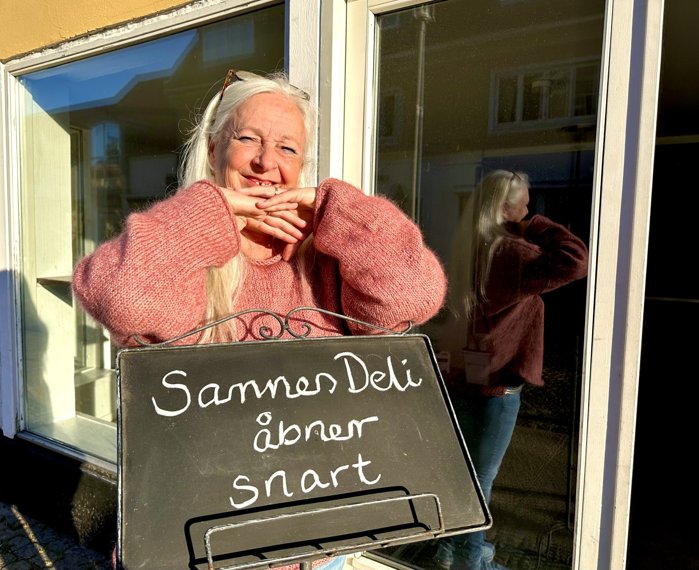 Sannes Deli
åbner
snart